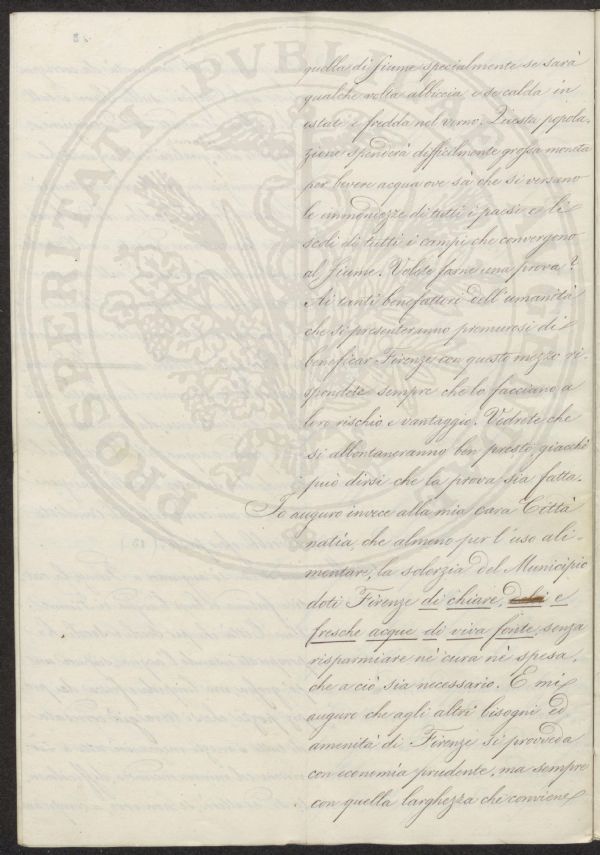 quella di fiume specialmente se sarà
qualche volta albiccia, e se calda in
estate e fredda nel verno. Questa popola-
zione spenderà difficilmente grossa moneta
per bevere acqua ove sà che si versano
le immondezze di tutti i paesi e li
scoli di tutti i campi che convergono
al fiume. Voleste farne una prova?
Ai tanti benefattori dell'umanità
che si presenteranno premurosi di
beneficar Firenze con questo mezzo ri-
spondete sempre che lo facciano a
loro rischio e vantaggio. Vedrete che
si allontaneranno ben presto, giacchè
può dirsi che la prova sia fatta.
Io auguro invece alla mia cara Città
natía, che almeno per l'uso ali-
mentare, la solerzia del Municipio
doti Firenze di chiare, e
fresche acque di viva fonte, senza
risparmiare nè cura nè spesa,
che a ciò sia necessario. E mi
auguro che agli altri bisogni ed
amenità di Firenze si provveda
con economia prudente, ma sempre
con quella larghezza che conviene
PROSPERITATI PVBLICAE